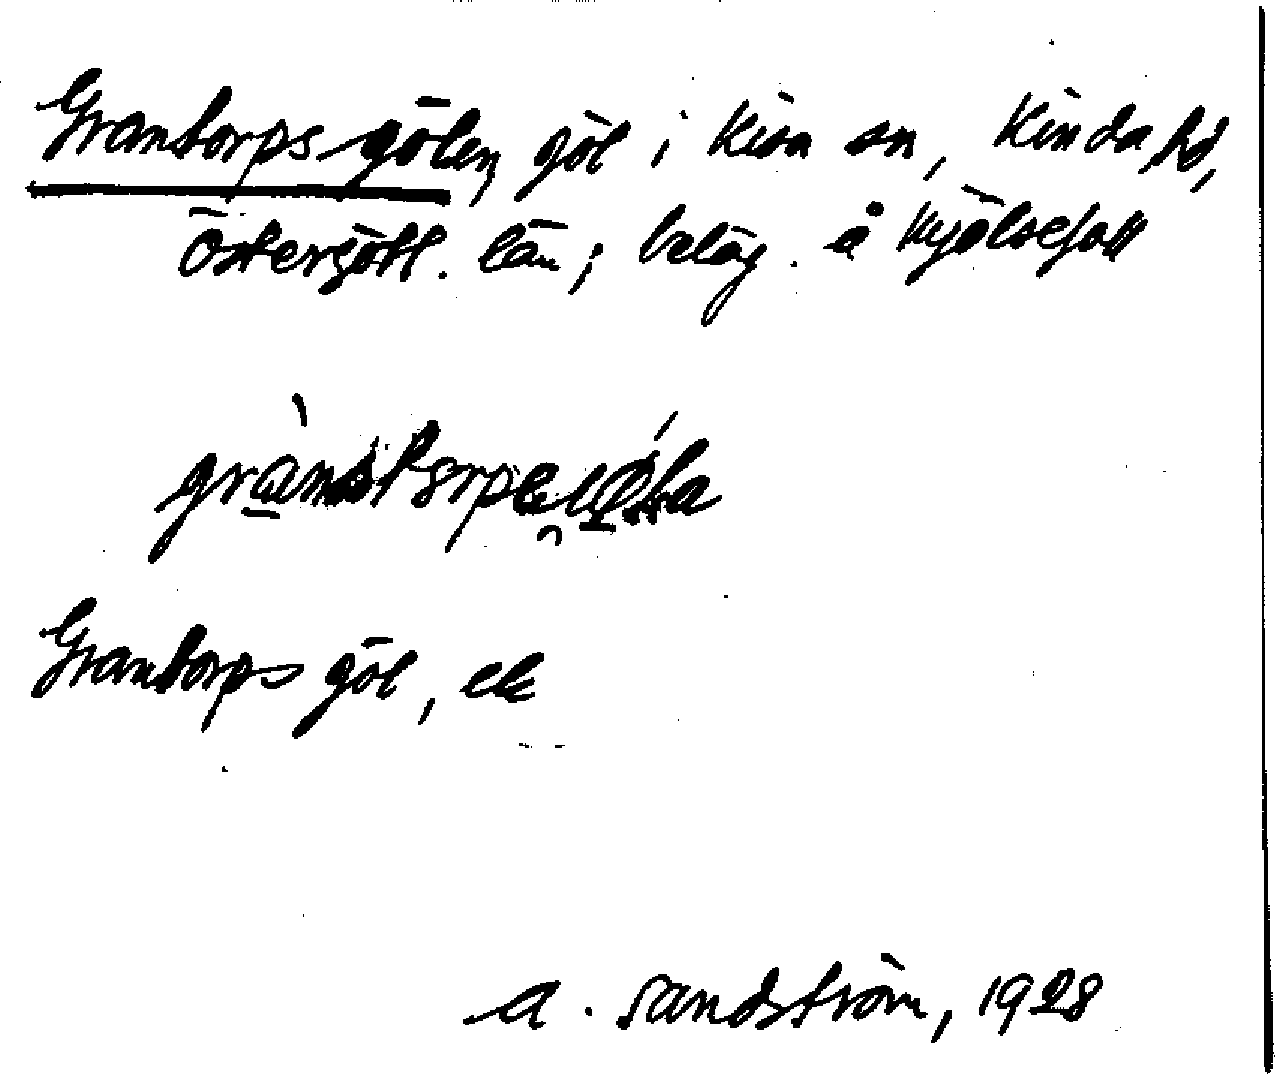 Grantorpsgölen, göl i Kisa sn, Kinda hd,
Östergötl. län; beläg. å Kjölsefall
Grantorps göl, ek
A. Sandström, 1928